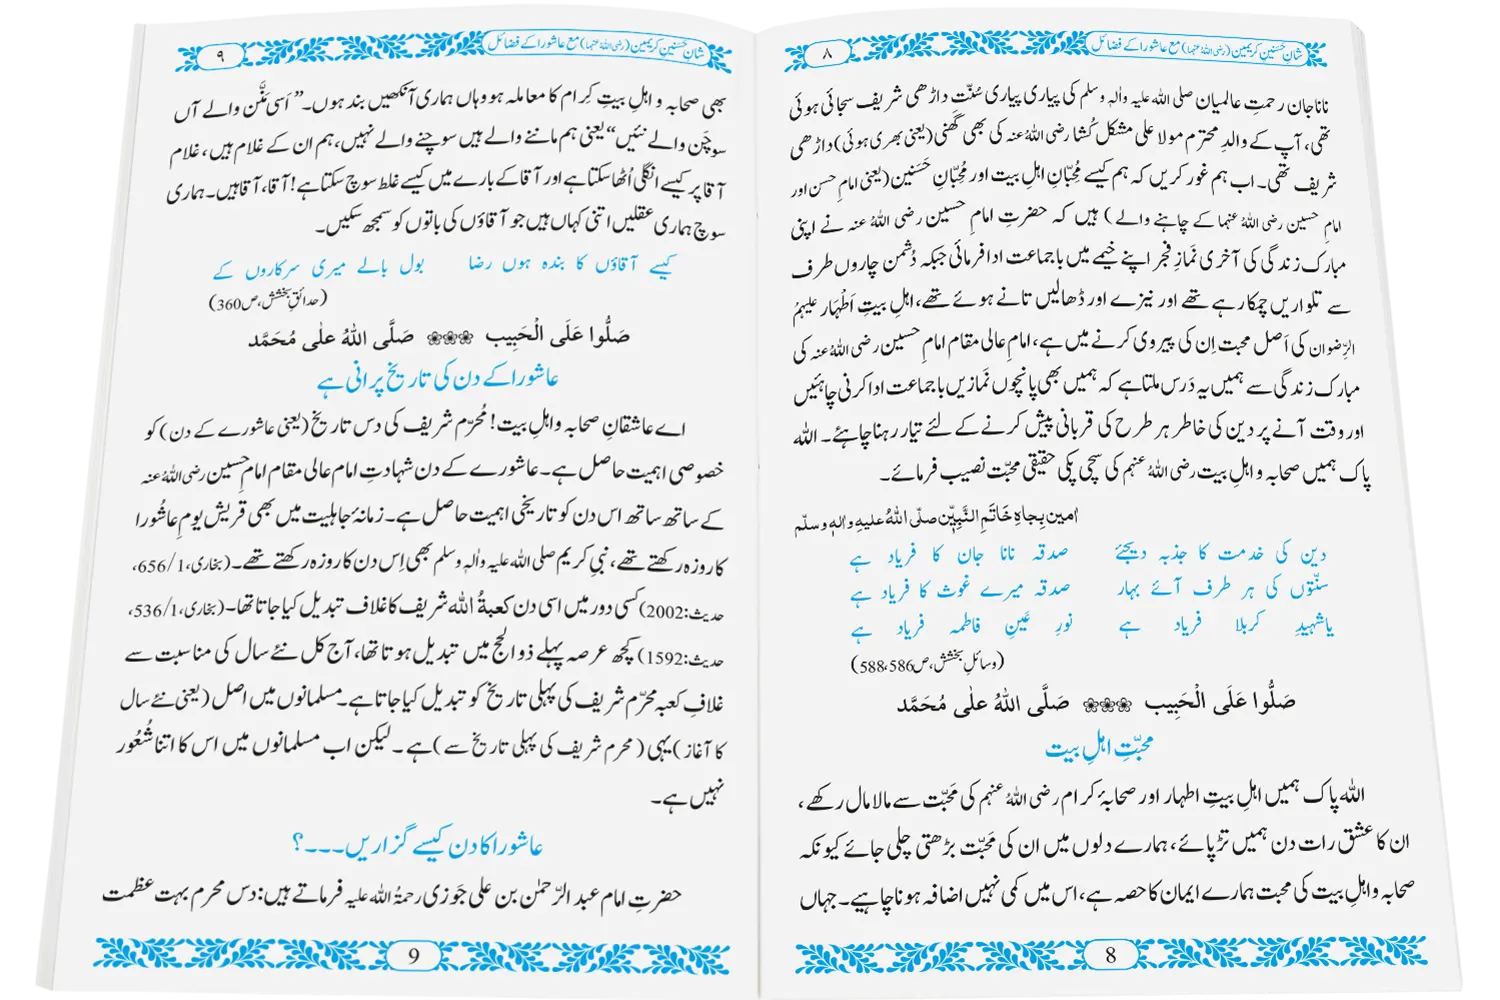 شانِ حسنین کریمین (رضی اللہ عنہما) مع عاشورا کے فضائل
۸
نانا جان رحمتِ عالمیان صلی اللہ علیہ واٰلہٖ وسلم کی پیاری پیاری سُنّت داڑھی شریف سجائی ہوئی
تھی، آپ کے والدِ محترم مولا علی مشکل کُشا رضی اللہُ عنہ کی بھی گھَنی (یعنی بھری ہوئی) داڑھی
شریف تھی۔ اب ہم غور کریں کہ ہم کیسے مُحِبّانِ اہلِ بیت اور مُحِبّانِ حَسَنین (یعنی امامِ حسن اور
امامِ حسین رضی اللہُ عنہما کے چاہنے والے) ہیں کہ حضرتِ امامِ حسین رضی اللہُ عنہ نے اپنی
مبارک زندگی کی آخری نَمازِ فجر اپنے خیمے میں باجماعت ادا فرمائی جبکہ دُشمن چاروں طرف
سے تلواریں چمکا رہے تھے اور نیزے اور ڈھالیں تانے ہوئے تھے، اہلِ بیتِ اَطْہار علیہمُ
الرّضوان کی اَصل محبت اِن کی پیروی کرنے میں ہے، امامِ عالی مقام امامِ حسین رضی اللہُ عنہ کی
مبارک زندگی سے ہمیں یہ دَرس ملتا ہے کہ ہمیں بھی پانچوں نَمازیں باجماعت ادا کرنی چاہئیں
اور وقت آنے پر دین کی خاطر ہر طرح کی قربانی پیش کرنے کے لئے تیار رہنا چاہئے۔ اللہ
پاک ہمیں صحابہ و اہلِ بیت رضی اللہُ عنہم کی سچی پکی حقیقی محبّت نصیب فرمائے۔
اٰمین بِجاہِ خَاتَمِ النَّبِیّٖن صلّی اللہُ علیہِ واٰلہٖ وسلّم
دین کی خدمت کا جذبہ دیجئے صدقہ نانا جان کا فریاد ہے
سنّتوں کی ہر طرف آئے بہار صدقہ میرے غوث کا فریاد ہے
یاشہیدِ کربلا فریاد ہے نورِ عَینِ فاطمہ فریاد ہے
(وسائلِ بخشش، ص586، 588)
صَلُّوا عَلَی الْحَبِیب صَلَّی اللهُ علٰی مُحَمَّد
محبّتِ اہلِ بیت
اللہ پاک ہمیں اہلِ بیتِ اطہار اور صحابۂ کرام رضی اللہُ عنہم کی مَحبّت سے مالا مال رکھے،
ان کا عشق رات دن ہمیں تڑپائے، ہمارے دلوں میں ان کی مَحبّت بڑھتی چلی جائے کیونکہ
صحابہ و اہلِ بیت کی محبت ہمارے ایمان کا حصہ ہے، اس میں کمی نہیں اضافہ ہونا چاہیے۔ جہاں
8
شانِ حسنین کریمین (رضی اللہ عنہما) مع عاشورا کے فضائل
۹
بھی صحابہ و اہلِ بیتِ کِرام کا معاملہ ہو وہاں ہماری آنکھیں بند ہوں۔ ”اَسی مَنَّن والے آں
سوچَن والے نئیں“ یعنی ہم ماننے والے ہیں سوچنے والے نہیں، ہم ان کے غلام ہیں، غلام
آقا پر کیسے انگلی اُٹھا سکتا ہے اور آقا کے بارے میں کیسے غلط سوچ سکتا ہے! آقا، آقا ہیں۔ ہماری
سوچ ہماری عقلیں اتنی کہاں ہیں جو آقاؤں کی باتوں کو سمجھ سکیں۔
کیسے آقاؤں کا بندہ ہوں رضا بول بالے میری سرکاروں کے
(حدائقِ بخشش، ص360)
صَلُّوا عَلَی الْحَبِیب صَلَّی اللهُ علٰی مُحَمَّد
عاشورا کے دن کی تاریخ پرانی ہے
اے عاشقانِ صحابہ و اہلِ بیت! مُحرّم شریف کی دس تاریخ (یعنی عاشورے کے دن) کو
خصوصی اہمیت حاصل ہے۔ عاشورے کے دن شہادتِ امامِ عالی مقام امام حسین رضی اللہُ عنہ
کے ساتھ ساتھ اس دن کو تاریخی اہمیت حاصل ہے۔ زمانۂ جاہلیت میں بھی قریش یومِ عاشُورا
کا روزہ رکھتے تھے، نبیِ کریم صلی اللہ علیہ واٰلہٖ وسلم بھی اِس دن کا روزہ رکھتے تھے۔ (بخاری، 1/656،
حدیث:2002) کسی دور میں اسی دن کعبۃُ اللہ شریف کا غلاف تبدیل کیا جاتا تھا۔ (بخاری، 1/536،
حدیث:1592) کچھ عرصہ پہلے ذوالحج میں تبدیل ہوتا تھا، آج کل نئے سال کی مناسبت سے
غلافِ کعبہ محرّم شریف کی پہلی تاریخ کو تبدیل کیا جاتا ہے۔ مسلمانوں میں اصل (یعنی نئے سال
کا آغاز) یہی (محرم شریف کی پہلی تاریخ سے) ہے۔ لیکن اب مسلمانوں میں اس کا اتنا شُعُور
نہیں ہے۔
عاشورا کا دن کیسے گزاریں۔۔۔؟
حضرتِ امام عبد الرّحمٰن بن علی جَوزی رحمۃُ اللہ علیہ فرماتے ہیں: دس محرم بہت عظمت
9